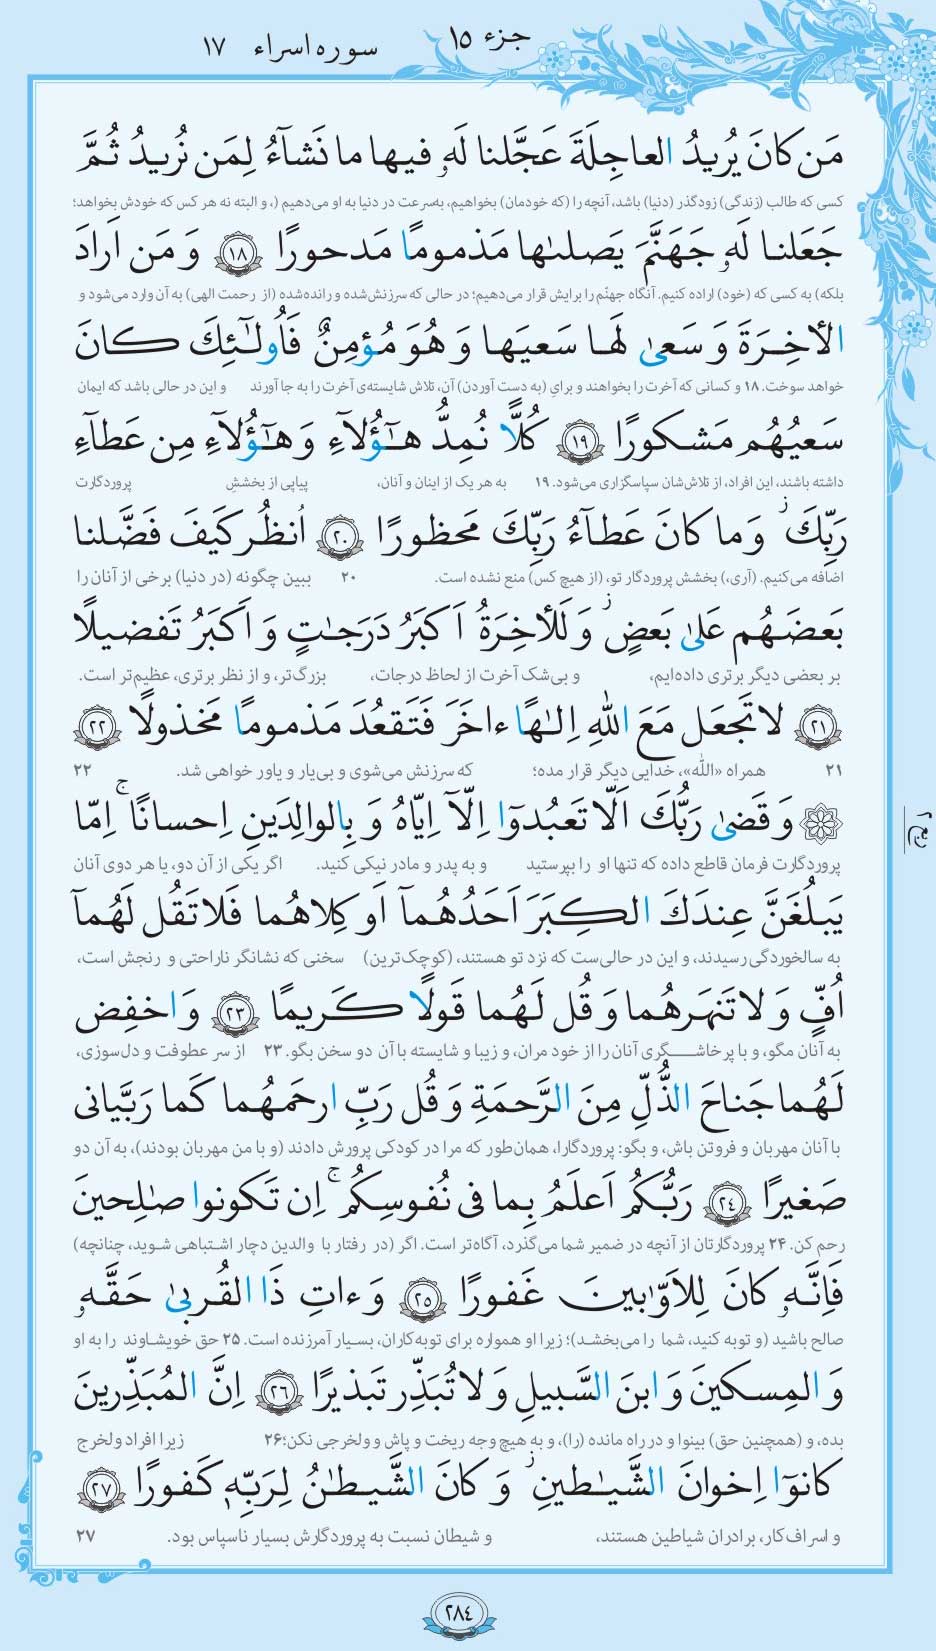 جزء ۱۵
سوره اسراء ۱۷
مَن كانَ يُريدُ العاجِلَةَ عَجَّلنا لَهُۥ فيها ما نَشآءُ لِمَن نُريدُ ثُمَّ
کسی که طالب (زندگی) زودگذر (دنیا) باشد، آنچه را (که خودمان) بخواهیم، به‌سرعت در دنیا به او می‌دهیم (، و البته نه هر کس که خودش بخواهد؛
جَعَلنا لَهُۥ جَهَنَّمَ يَصلىٰها مَذمومًا مَدحورًا ﴿١٨﴾ وَ مَن اَرادَ
بلکه) به کسی که (خود) اراده کنیم. آنگاه جهنّم را برایش قرار می‌دهیم؛ در حالی که سرزنش‌شده و رانده‌شده (از رحمت الهی) به آن وارد می‌شود و
الأخِرَةَ وَ سَعىٰ لَها سَعيَها وَ هُوَ مُؤمِنٌ فَاُولٰٓئِكَ كانَ
خواهد سوخت. ۱۸ و کسانی که آخرت را بخواهند و برایِ (به دست آوردن) آن، تلاش شایسته‌ی آخرت را به جا آورند و این در حالی باشد که ایمان
سَعيُهُم مَشكورًا ﴿١٩﴾ كُلًّا نُمِدُّ هٰٓؤُلآءِ وَ هٰٓؤُلآءِ مِن عَطآءِ
داشته باشند، این افراد، از تلاش‌شان سپاسگزاری می‌شود. ۱۹ به هر یک از اینان و آنان، پیاپی از بخششِ پروردگارت
رَبِّكَ ۚ وَ ما كانَ عَطآءُ رَبِّكَ مَحظورًا ﴿٢٠﴾ اُنظُر كَيفَ فَضَّلنا
اضافه می‌کنیم. (آری،) بخشش پروردگار تو، (از هیچ کس) منع نشده است. ۲۰ ببین چگونه (در دنیا) برخی از آنان را
بَعضَهُم عَلىٰ بَعضٍ ۚ وَ لَلأخِرَةُ اَكبَرُ دَرَجٰتٍ وَ اَكبَرُ تَفضيلًا
بر بعضی دیگر برتری داده‌ایم، و بی‌شک آخرت از لحاظ درجات، بزرگ‌تر، و از نظر برتری، عظیم‌تر است.
﴿٢١﴾ لا تَجعَل مَعَ اللّٰهِ اِلٰهًا ءاخَرَ فَتَقعُدَ مَذمومًا مَخذولًا ﴿٢٢﴾
۲۱ همراه «اللّٰه»، خدایی دیگر قرار مده؛ که سرزنش می‌شوی و بی‌یار و یاور خواهی شد. ۲۲
وَ قَضىٰ رَبُّكَ اَلّا تَعبُدوٓا اِلّآ اِيّاهُ وَ بِالوالِدَينِ اِحسانًا ۚ اِمّا
پروردگارت فرمان قاطع داده که تنها او را بپرستید و به پدر و مادر نیکی کنید. اگر یکی از آن دو، یا هر دوی آنان
يَبلُغَنَّ عِندَكَ الكِبَرَ اَحَدُهُمآ اَو كِلاهُما فَلا تَقُل لَهُمآ
به سالخوردگی رسیدند، و این در حالی‌ست که نزد تو هستند، (کوچک‌ترین) سخنی که نشانگر ناراحتی و رنجش است،
اُفٍّ وَ لا تَنهَرهُما وَ قُل لَهُما قَولًا كَريمًا ﴿٢٣﴾ وَ اخفِض
به آنان مگو، و با پرخاشگری آنان را از خود مران، و زیبا و شایسته با آن دو سخن بگو. ۲۳ از سر عطوفت و دل‌سوزی،
لَهُما جَناحَ الذُّلِّ مِنَ الرَّحمَةِ وَ قُل رَبِّ ارحَمهُما كَما رَبَّيانى
با آنان مهربان و فروتن باش، و بگو: پروردگارا، همان‌طور که مرا در کودکی پرورش دادند (و با من مهربان بودند)، به آن دو
صَغيرًا ﴿٢٤﴾ رَبُّكُم اَعلَمُ بِما فى نُفوسِكُم ۚ اِن تَكونوا صٰلِحينَ
رحم کن. ۲۴ پروردگارتان از آنچه در ضمیر شما می‌گذرد، آگاه‌تر است. اگر (در رفتار با والدین دچار اشتباهی شوید، چنانچه)
فَاِنَّهُۥ كانَ لِلاَوّٰبينَ غَفورًا ﴿٢٥﴾ وَ ءاتِ ذَا القُربىٰ حَقَّهُۥ
صالح باشید (و توبه کنید، شما را می‌بخشد)؛ زیرا او همواره برای توبه‌کاران، بسیار آمرزنده است. ۲۵ حق خویشاوند را به او
وَ المِسكينَ وَ ابنَ السَّبيلِ وَ لا تُبَذِّر تَبذيرًا ﴿٢٦﴾ اِنَّ المُبَذِّرينَ
بده، و (همچنین حق) بینوا و در راه مانده (را)، و به هیچ وجه ریخت و پاش و ولخرجی نکن؛ ۲۶ زیرا افراد ولخرج
كانوٓا اِخوانَ الشَّيٰطينِ ۖ وَ كانَ الشَّيطٰنُ لِرَبِّهٖ كَفورًا ﴿٢٧﴾
و اسراف‌کار، برادران شیاطین هستند، و شیطان نسبت به پروردگارش بسیار ناسپاس بود. ۲۷
٢٨٤